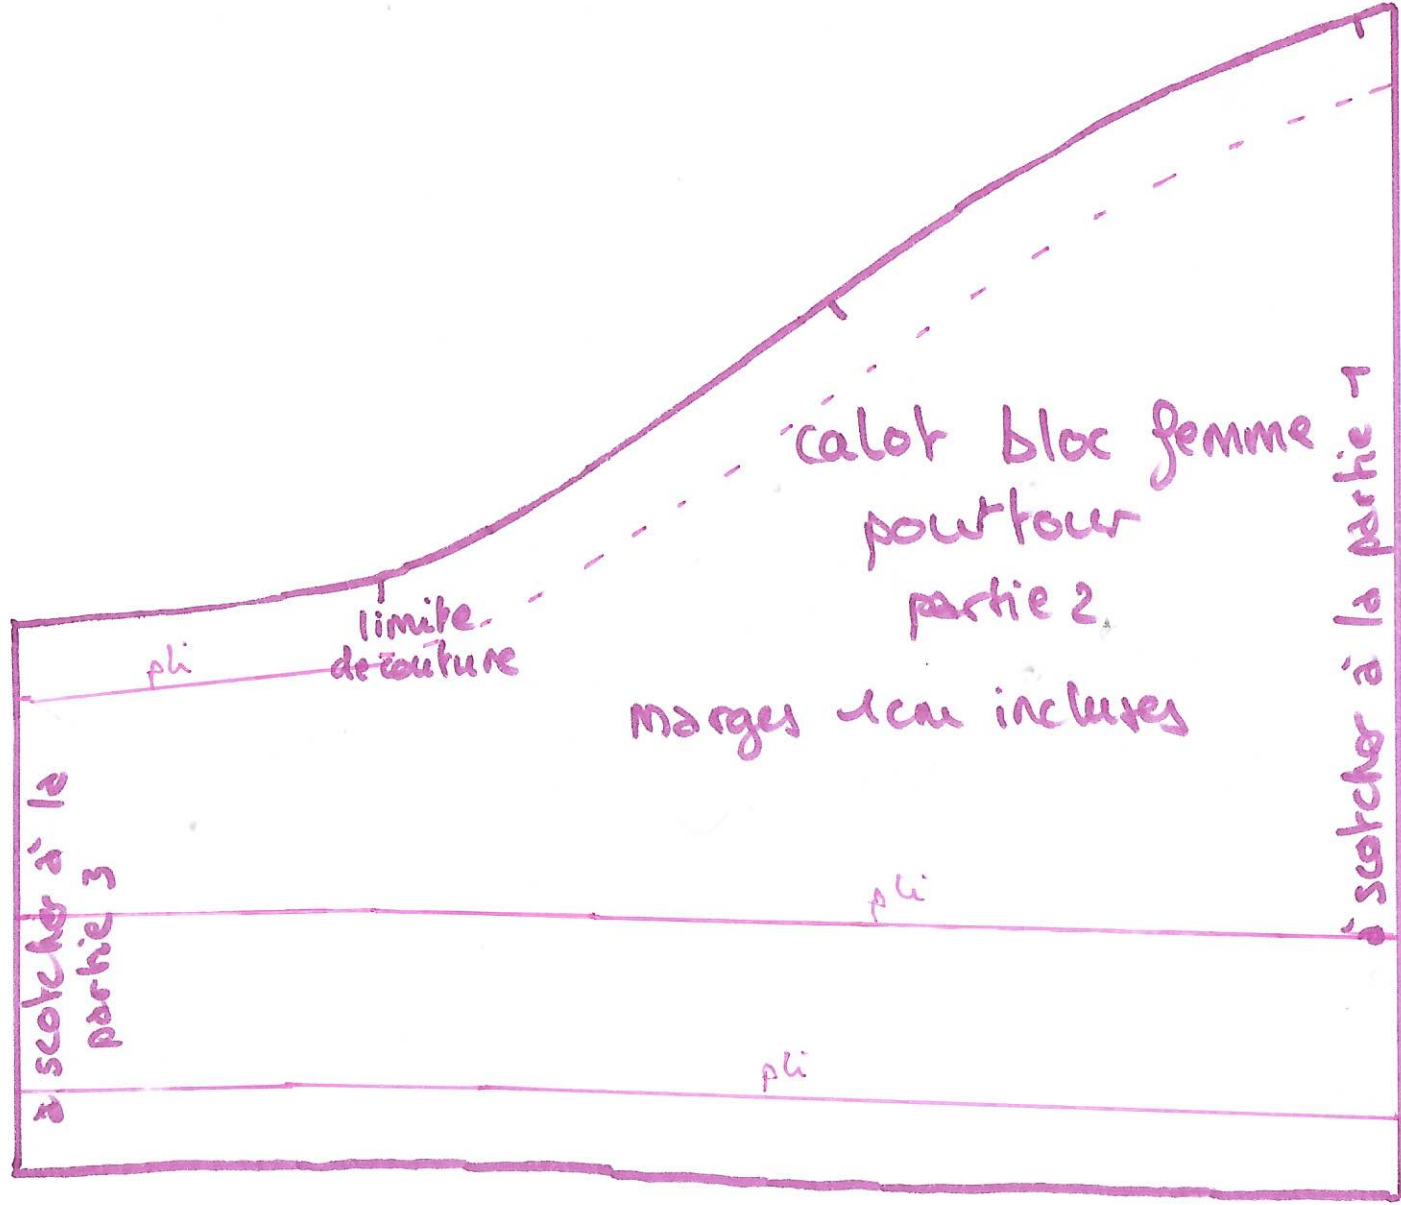 calot bloc femme
pourtour
partie 2
marges 1cm incluses
limite
de couture
pli
pli
pli
à scotcher à la
partie 3
à scotcher à la partie 1